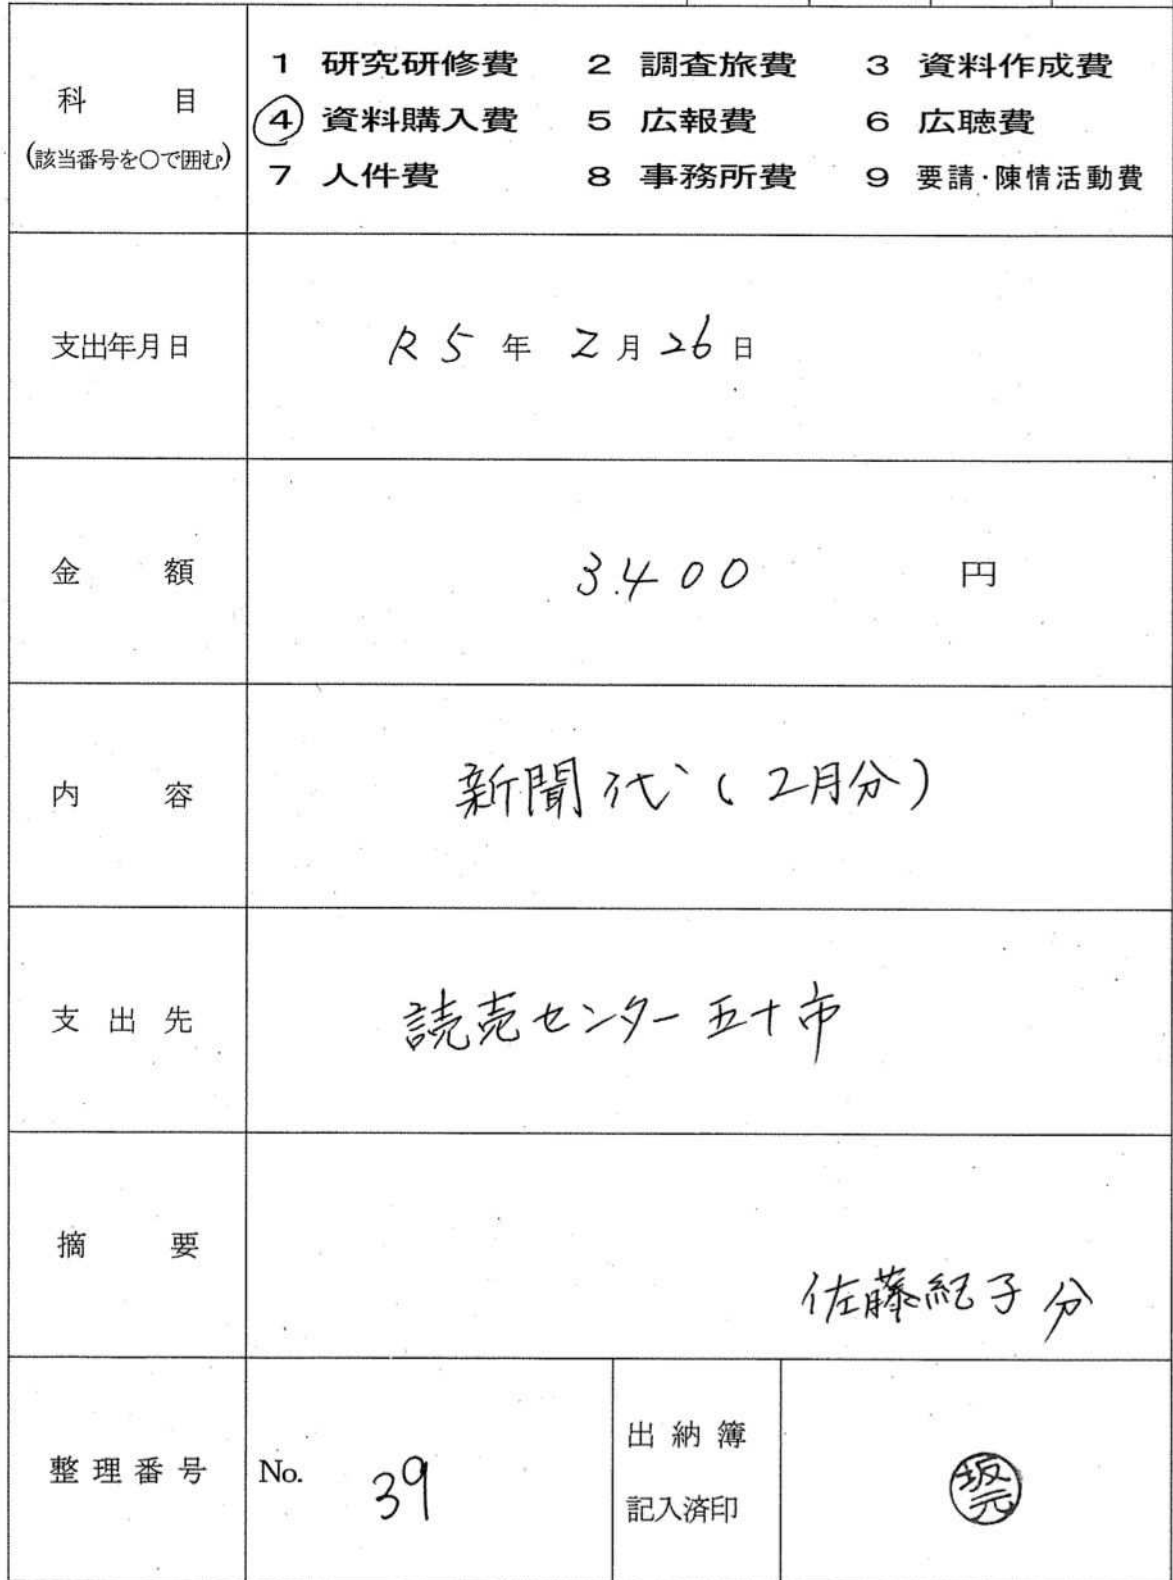 科目
(該当番号を○で囲む)
1 研究研修費 2 調査旅費 3 資料作成費
④ 資料購入費 5 広報費 6 広聴費
7 人件費 8 事務所費 9 要請・陳情活動費
支出年月日 R5年 2月26日
金額 3.400 円
内容 新聞代(2月分)
支出先 読売センター五十市
摘要 佐藤紀子分
整理番号 No. 39
出納簿
記入済印
坂元